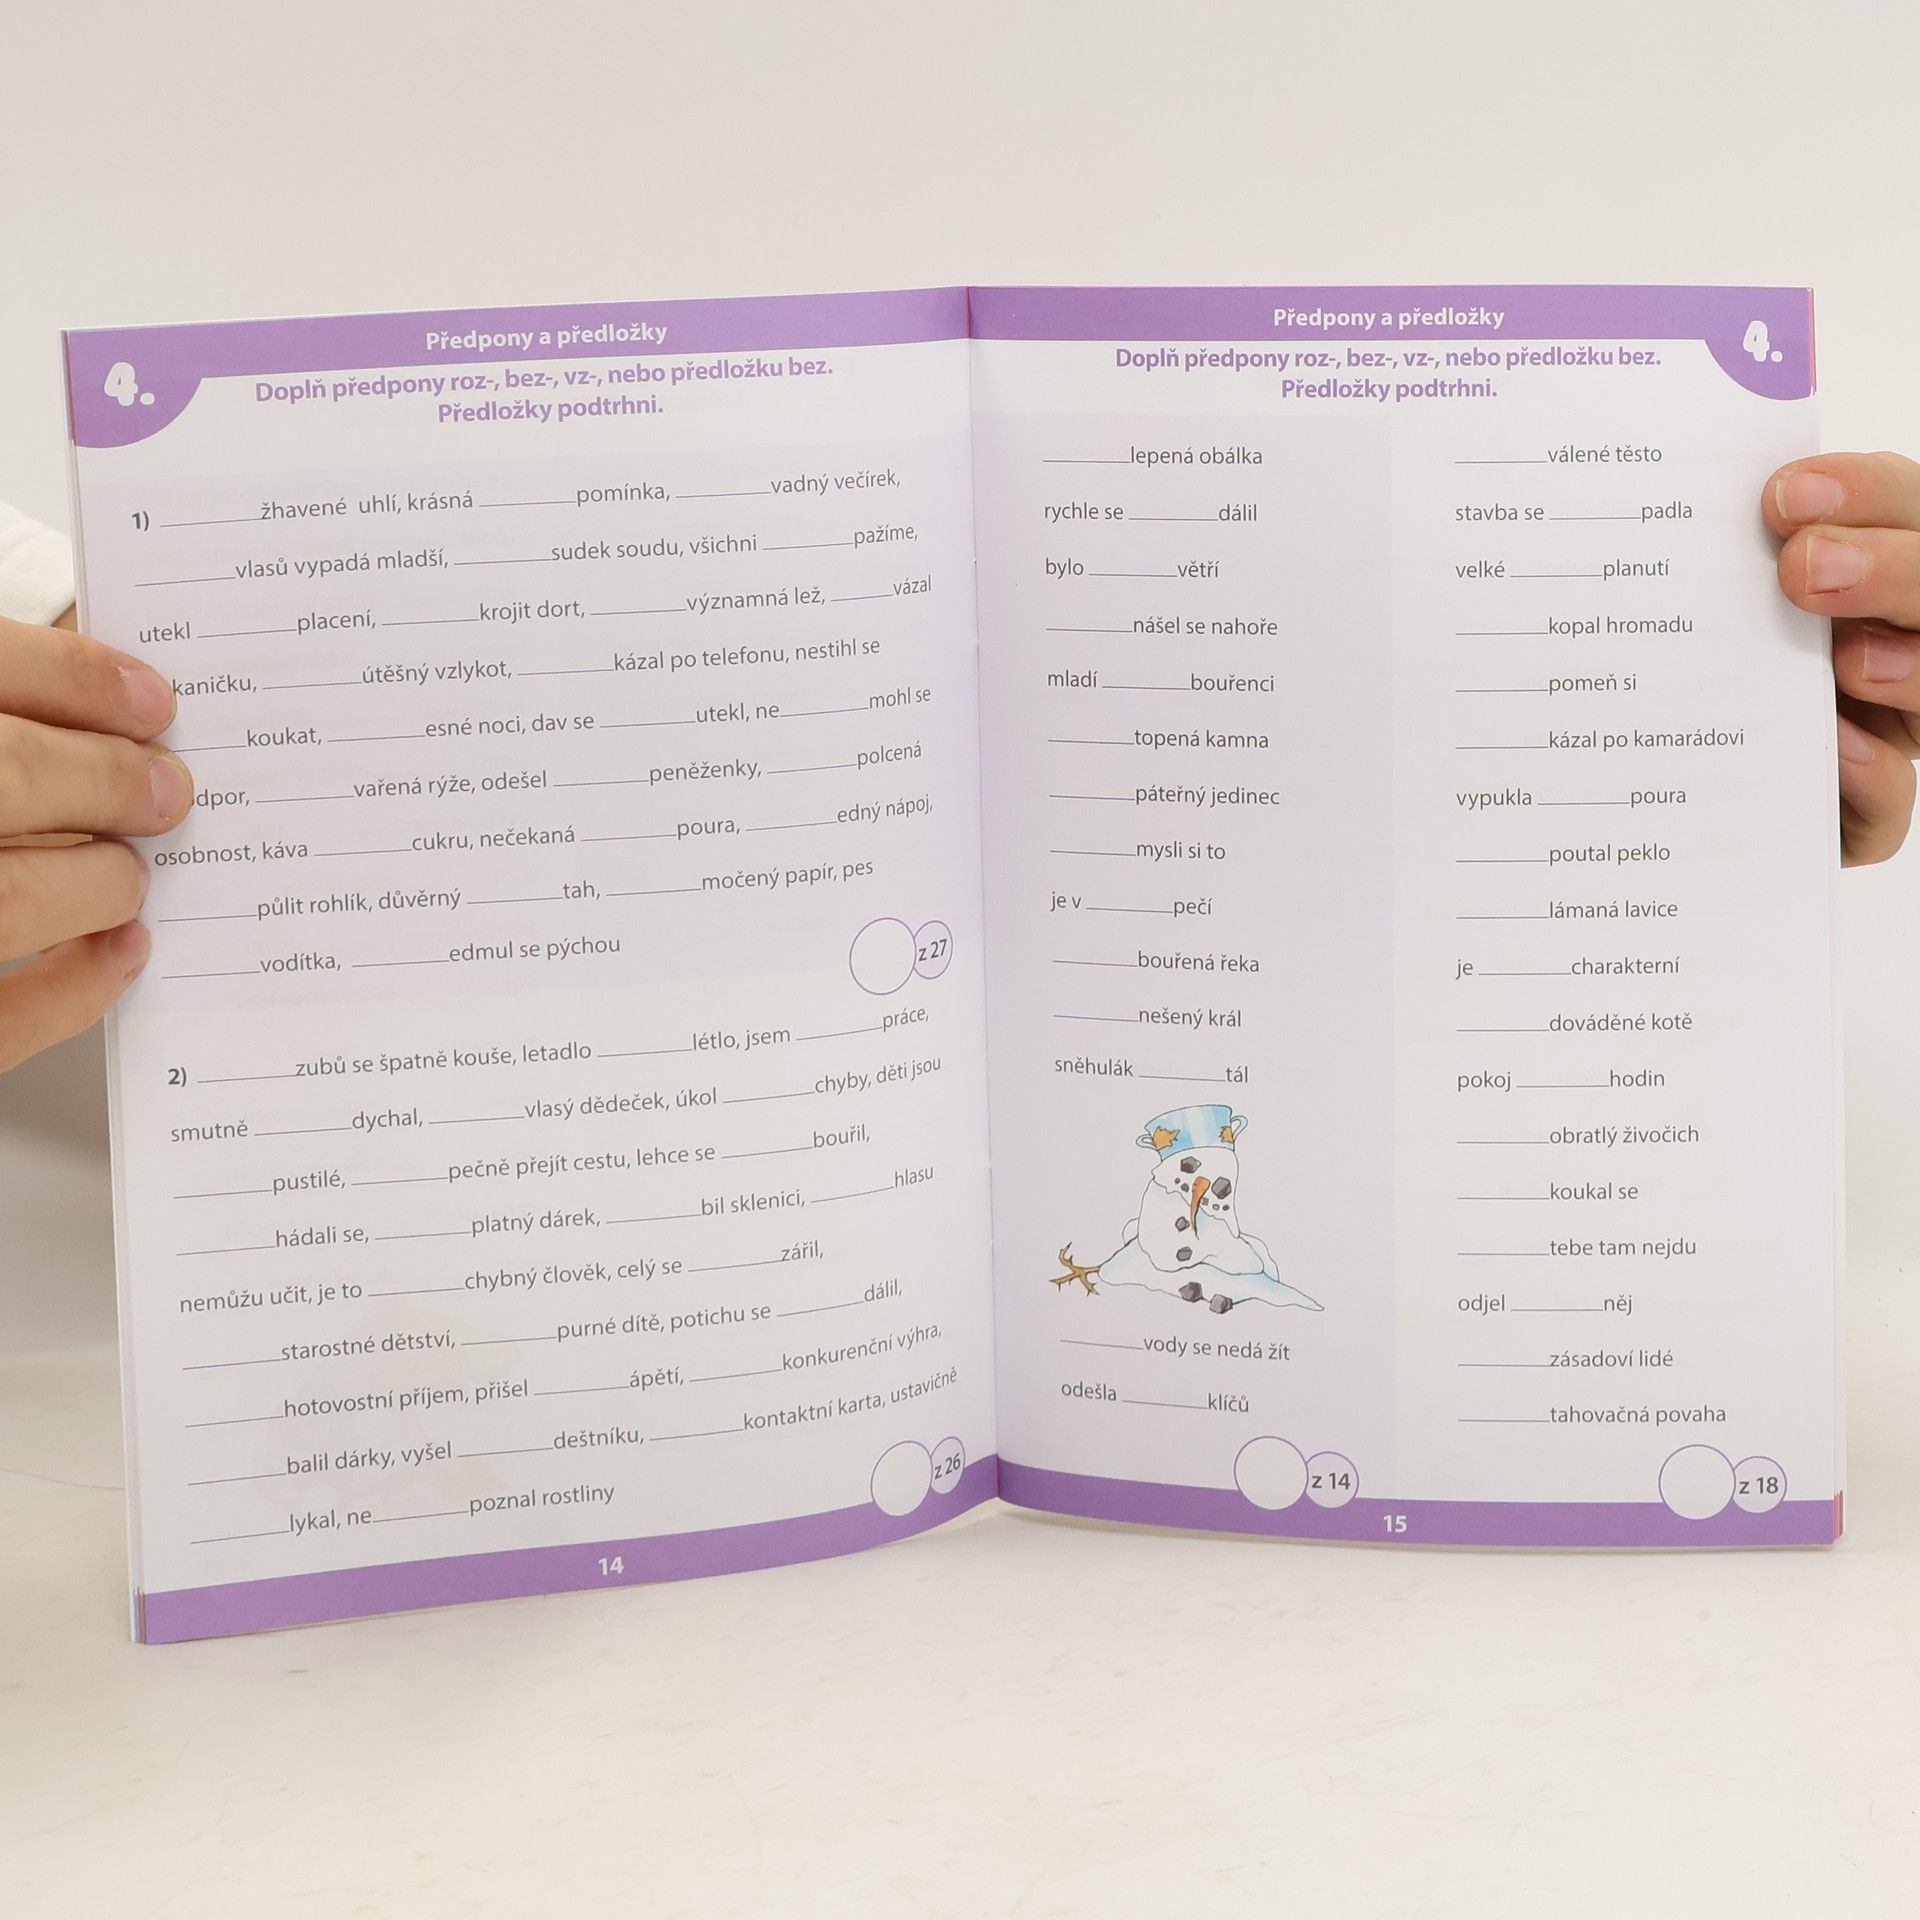 Předpony a předložky
4.
Doplň předpony roz-, bez-, vz-, nebo předložku bez.
Předložky podtrhni.
1) ________žhavené uhlí, krásná ________pomínka, ________vadný večírek,
________vlasů vypadá mladší, ________sudek soudu, všichni ________pažíme,
utekl ________placení, ________krojit dort, ________významná lež, ________vázal
kaničku, ________útěšný vzlykot, ________kázal po telefonu, nestihl se
________koukat, ________esné noci, dav se ________utekl, ne________mohl se
dpor, ________vařená rýže, odešel ________peněženky, ________polcená
osobnost, káva ________cukru, nečekaná ________poura, ________edný nápoj,
________půlit rohlík, důvěrný ________tah, ________močený papír, pes
________vodítka, ________edmul se pýchou
z 27
2) ________zubů se špatně kouše, letadlo ________létlo, jsem ________práce,
smutně ________dychal, ________vlasý dědeček, úkol ________chyby, děti jsou
________pustilé, ________pečně přejít cestu, lehce se ________bouřil,
________hádali se, ________platný dárek, ________bil sklenici, ________hlasu
nemůžu učit, je to ________chybný člověk, celý se ________zářil,
________starostné dětství, ________purné dítě, potichu se ________dálil,
________hotovostní příjem, přišel ________ápětí, ________konkurenční výhra,
________balil dárky, vyšel ________deštníku, ________kontaktní karta, ustavičně
________lykal, ne________poznal rostliny
z 26
14
Předpony a předložky
4.
Doplň předpony roz-, bez-, vz-, nebo předložku bez.
Předložky podtrhni.
________lepená obálka
rychle se ________dálil
bylo ________větří
________nášel se nahoře
mladí ________bouřenci
________topená kamna
________páteřný jedinec
________mysli si to
je v ________pečí
________bouřená řeka
________nešený král
sněhulák ________tál
________vody se nedá žít
odešla ________klíčů
z 14
________válené těsto
stavba se ________padla
velké ________planutí
________kopal hromadu
________pomeň si
________kázal po kamarádovi
vypukla ________poura
________poutal peklo
________lámaná lavice
je ________charakterní
________dováděné kotě
pokoj ________hodin
________obratlý živočich
________koukal se
________tebe tam nejdu
odjel ________něj
________zásadoví lidé
________tahovačná povaha
z 18
15